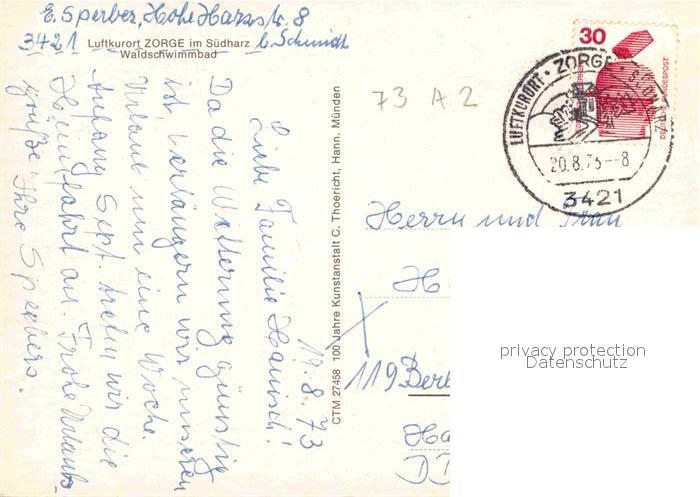 E. Sperber, Hohe Harzstr. 8
3421 b. Schmidt
Luftkurort ZORGE im Südharz
Waldschwimmbad
19.8.73
Liebe Familie Hanisch!
Da die Witterung günstig
ist, verlängern wir unseren
Urlaub um eine Woche.
Anfang Sept. treten wir die
Heimfahrt an. Frohe Urlaubs-
grüße Ihre Sperbers.
CTM 27458 100 Jahre Kunstanstalt C. Thoericht, Hann. Münden
73 A 2
30
DEUTSCHE BUNDESPOST
LUFTKURORT · ZORGE
20.8.73-8
3421
Herrn und Frau
H
119 Berl
DD
privacy protection
Datenschutz